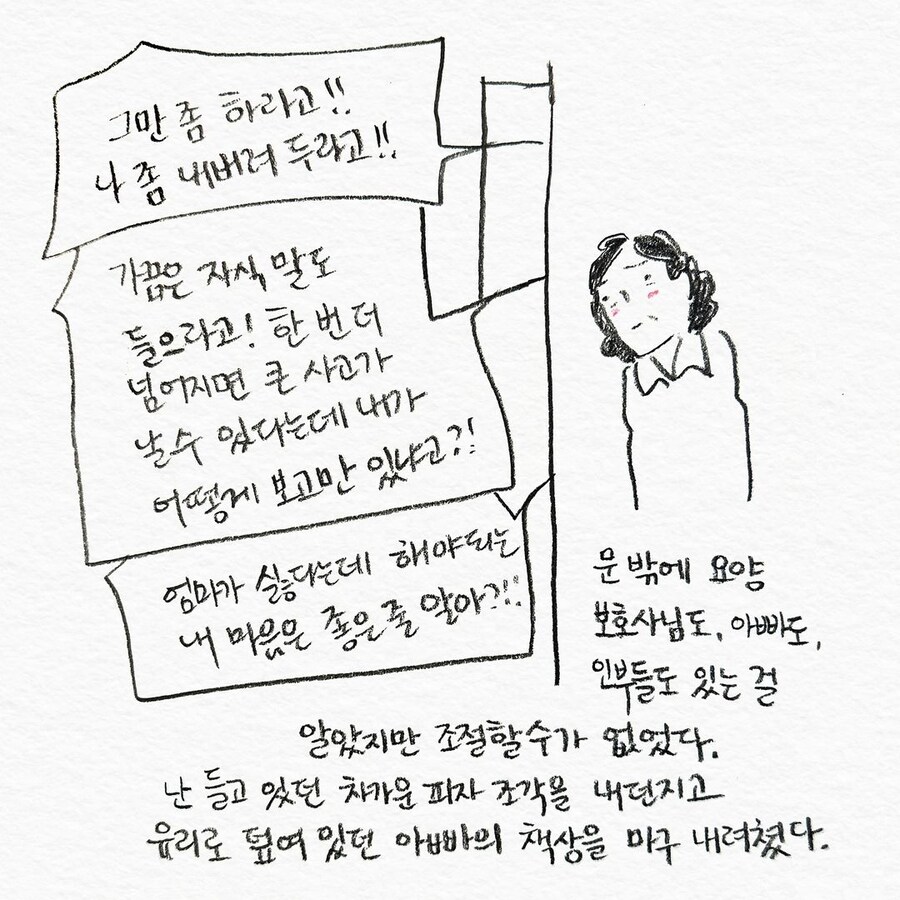 그만 좀 하라고!!
나 좀 내버려 두라고!!
가끔은 자식 말도
들으라고! 한 번 더
넘어지면 큰 사고가
날 수 있다는데 내가
어떻게 보고만 있냐고?!
엄마가 싫다는데 해야되는
내 마음은 좋은 줄 알아?!!
문 밖에 요양
보호사님도, 아빠도,
인부들도 있는 걸
알았지만 조절할 수가 없었다.
난 들고 있던 차가운 피자 조각을 내던지고
유리로 덮여 있던 아빠의 책상을 마구 내려쳤다.